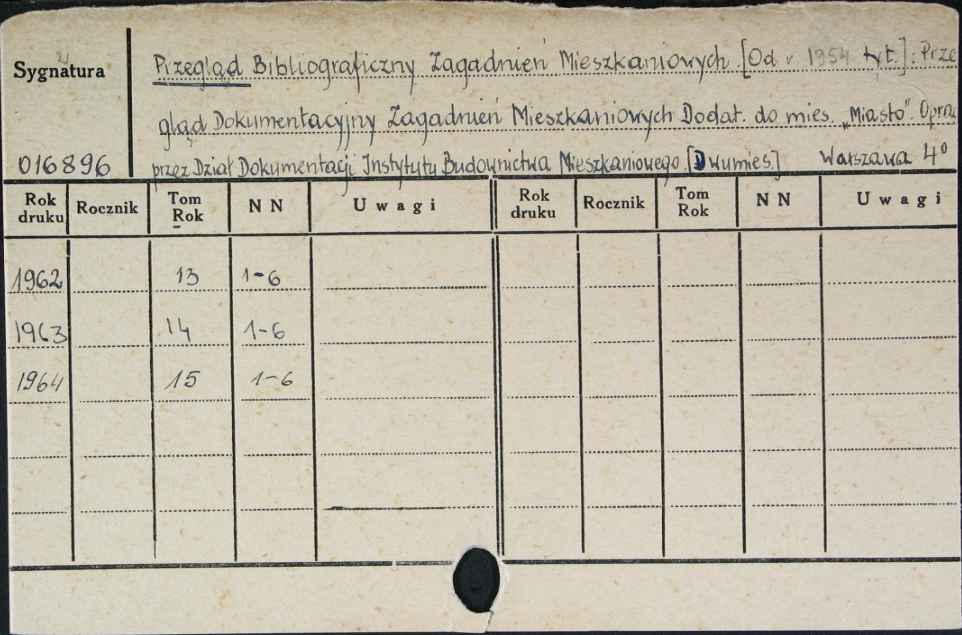 Sygnatura
Przegląd Bibliograficzny Zagadnień Mieszkaniowych. [Od r. 1954 tyt.]: Prze
gląd Dokumentacyjny Zagadnień Mieszkaniowych Dodat. do mies. „Miasto". Oprac
016896 przez Dział Dokumentacji Instytutu Budownictwa Mieszkaniowego [Dwumies.] Warszawa 4°
Rok druku Rocznik Tom Rok N N Uwagi Rok druku Rocznik Tom Rok N N Uwagi
1962 13 1-6
1963 14 1-6
1964 15 1-6